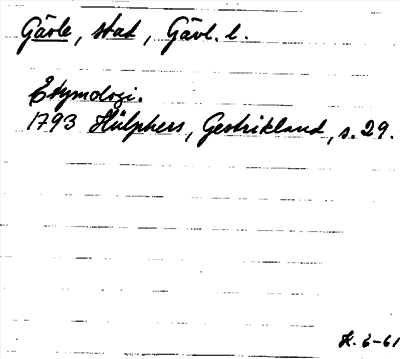 Gävle, stad, Gävl. l.
Etymologi.
1793 Hülphers, Gestrikland, s. 29.
H. 6-61